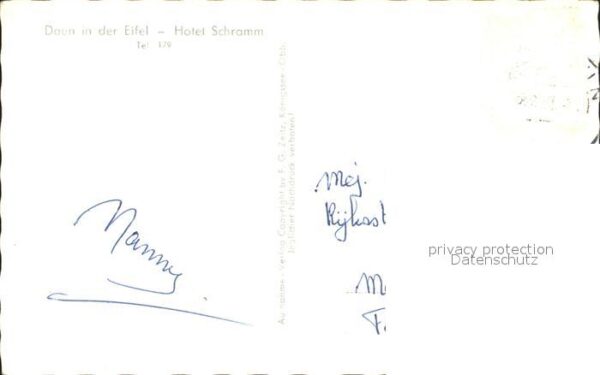 Daun in der Eifel – Hotel Schramm
Tel. 179
Aufnahme - Verlag Copyright by F. G. Zeitz, Königssee - Obb.
Jeglicher Nachdruck verboten!
Nanny
Mej.
Rijksst
M
F.
privacy protection
Datenschutz